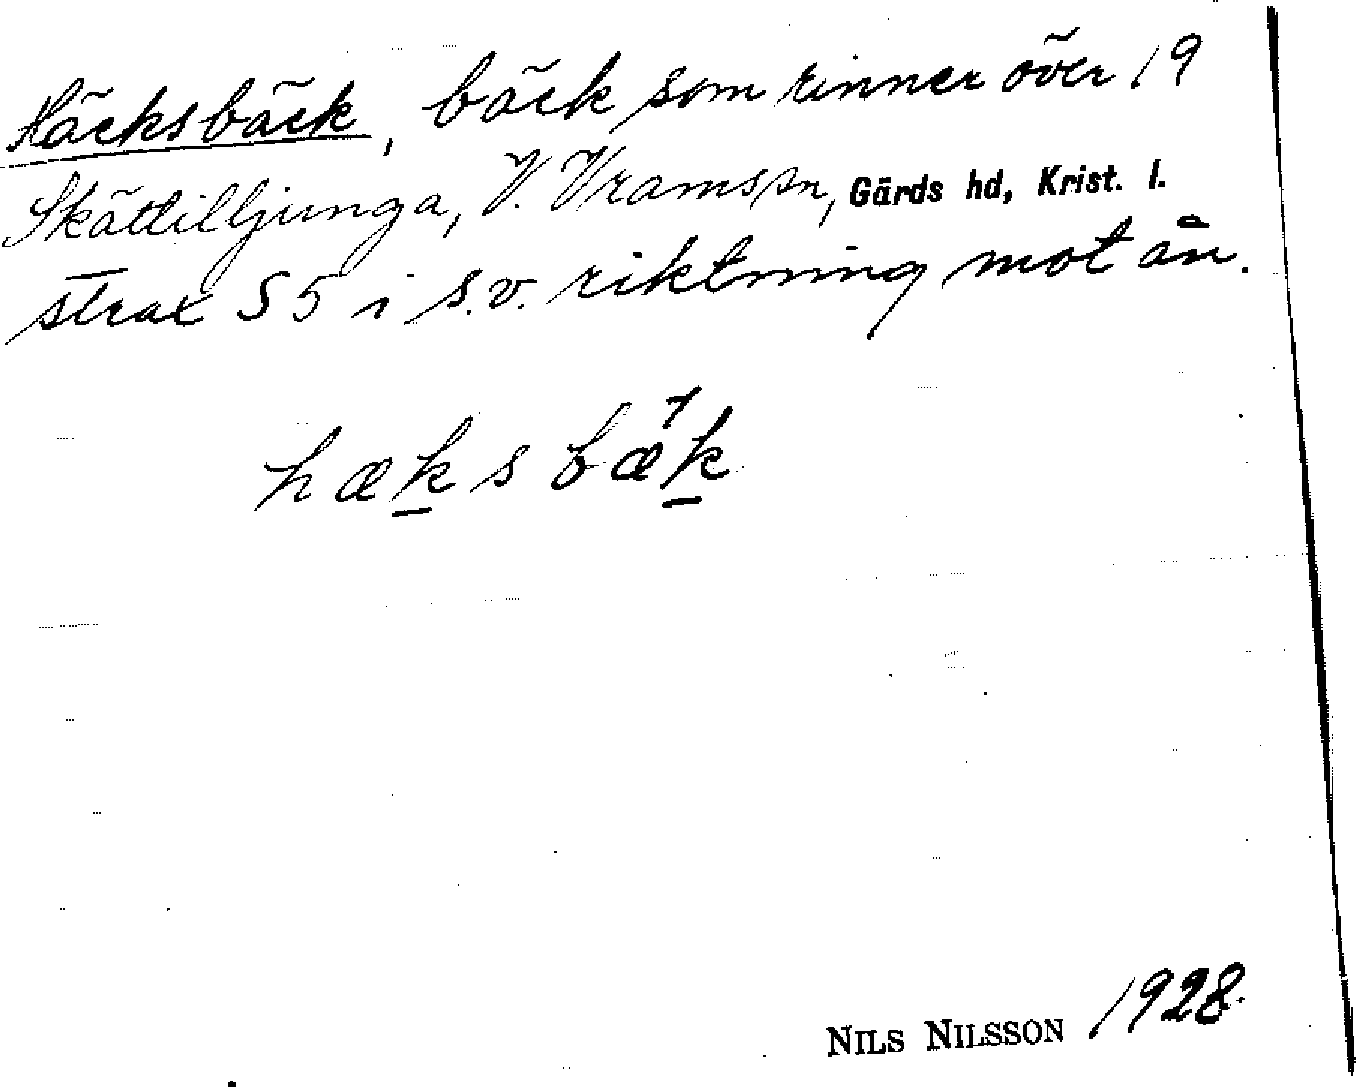 Häcksbäck, bäck som rinner över 19
Skättilljunga, V. Vrams sn, Gärds hd, Krist. l.
strax S 5 i s.v. riktning mot ån.
hæksbæk
NILS NILSSON 1928.